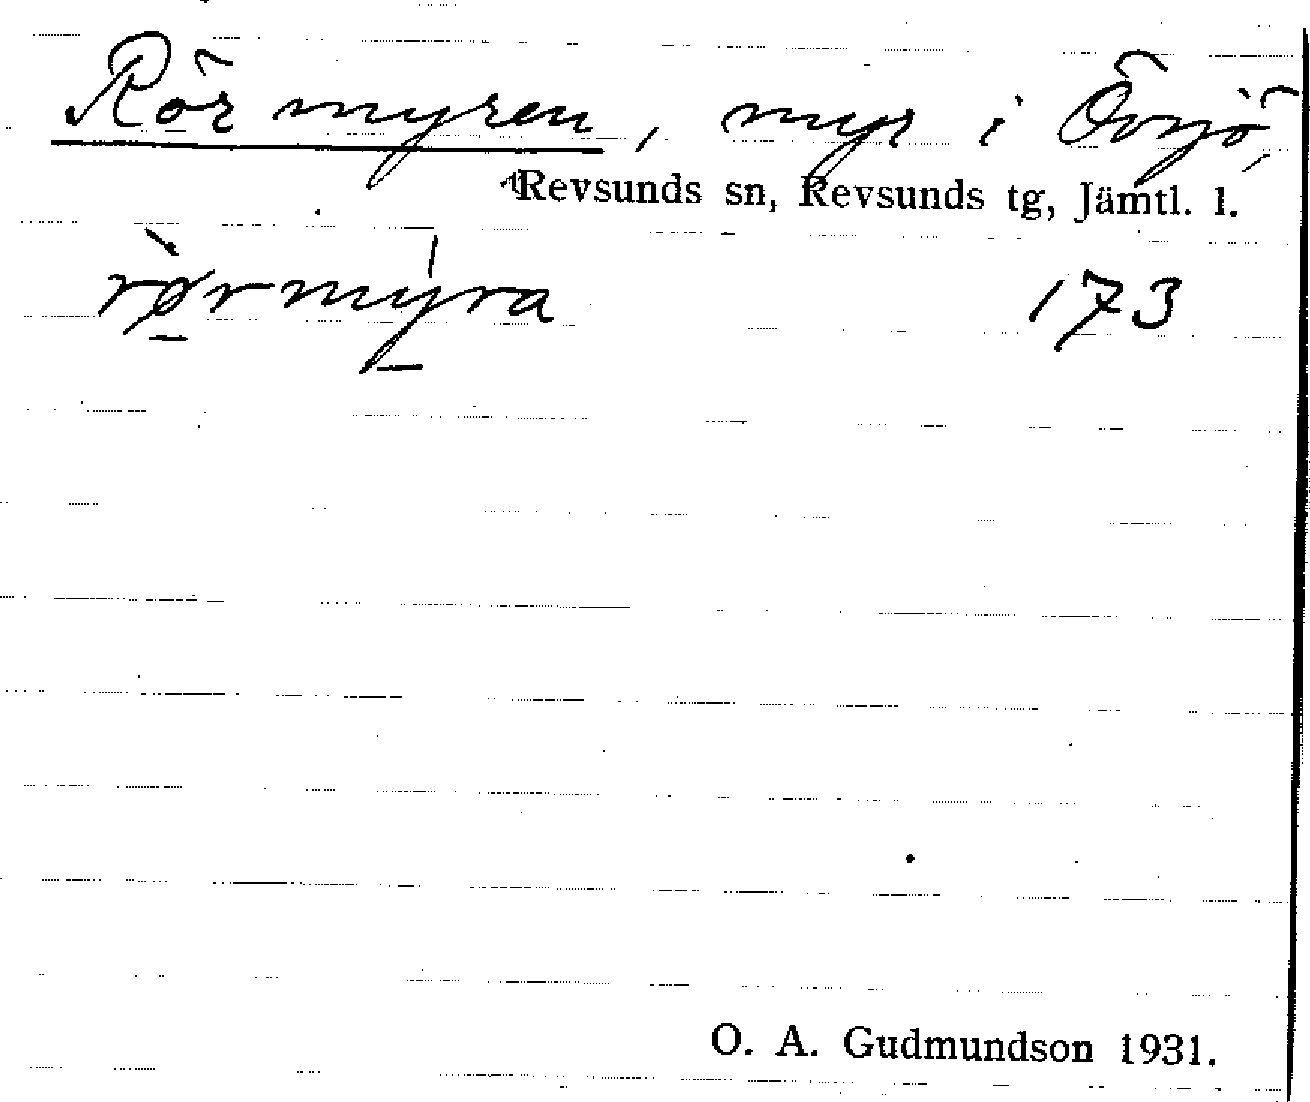 Rörmyren, myr i Övsjö,
Revsunds sn, Revsunds tg, Jämtl. l.
rørmyra 173
O. A. Gudmundson 1931.